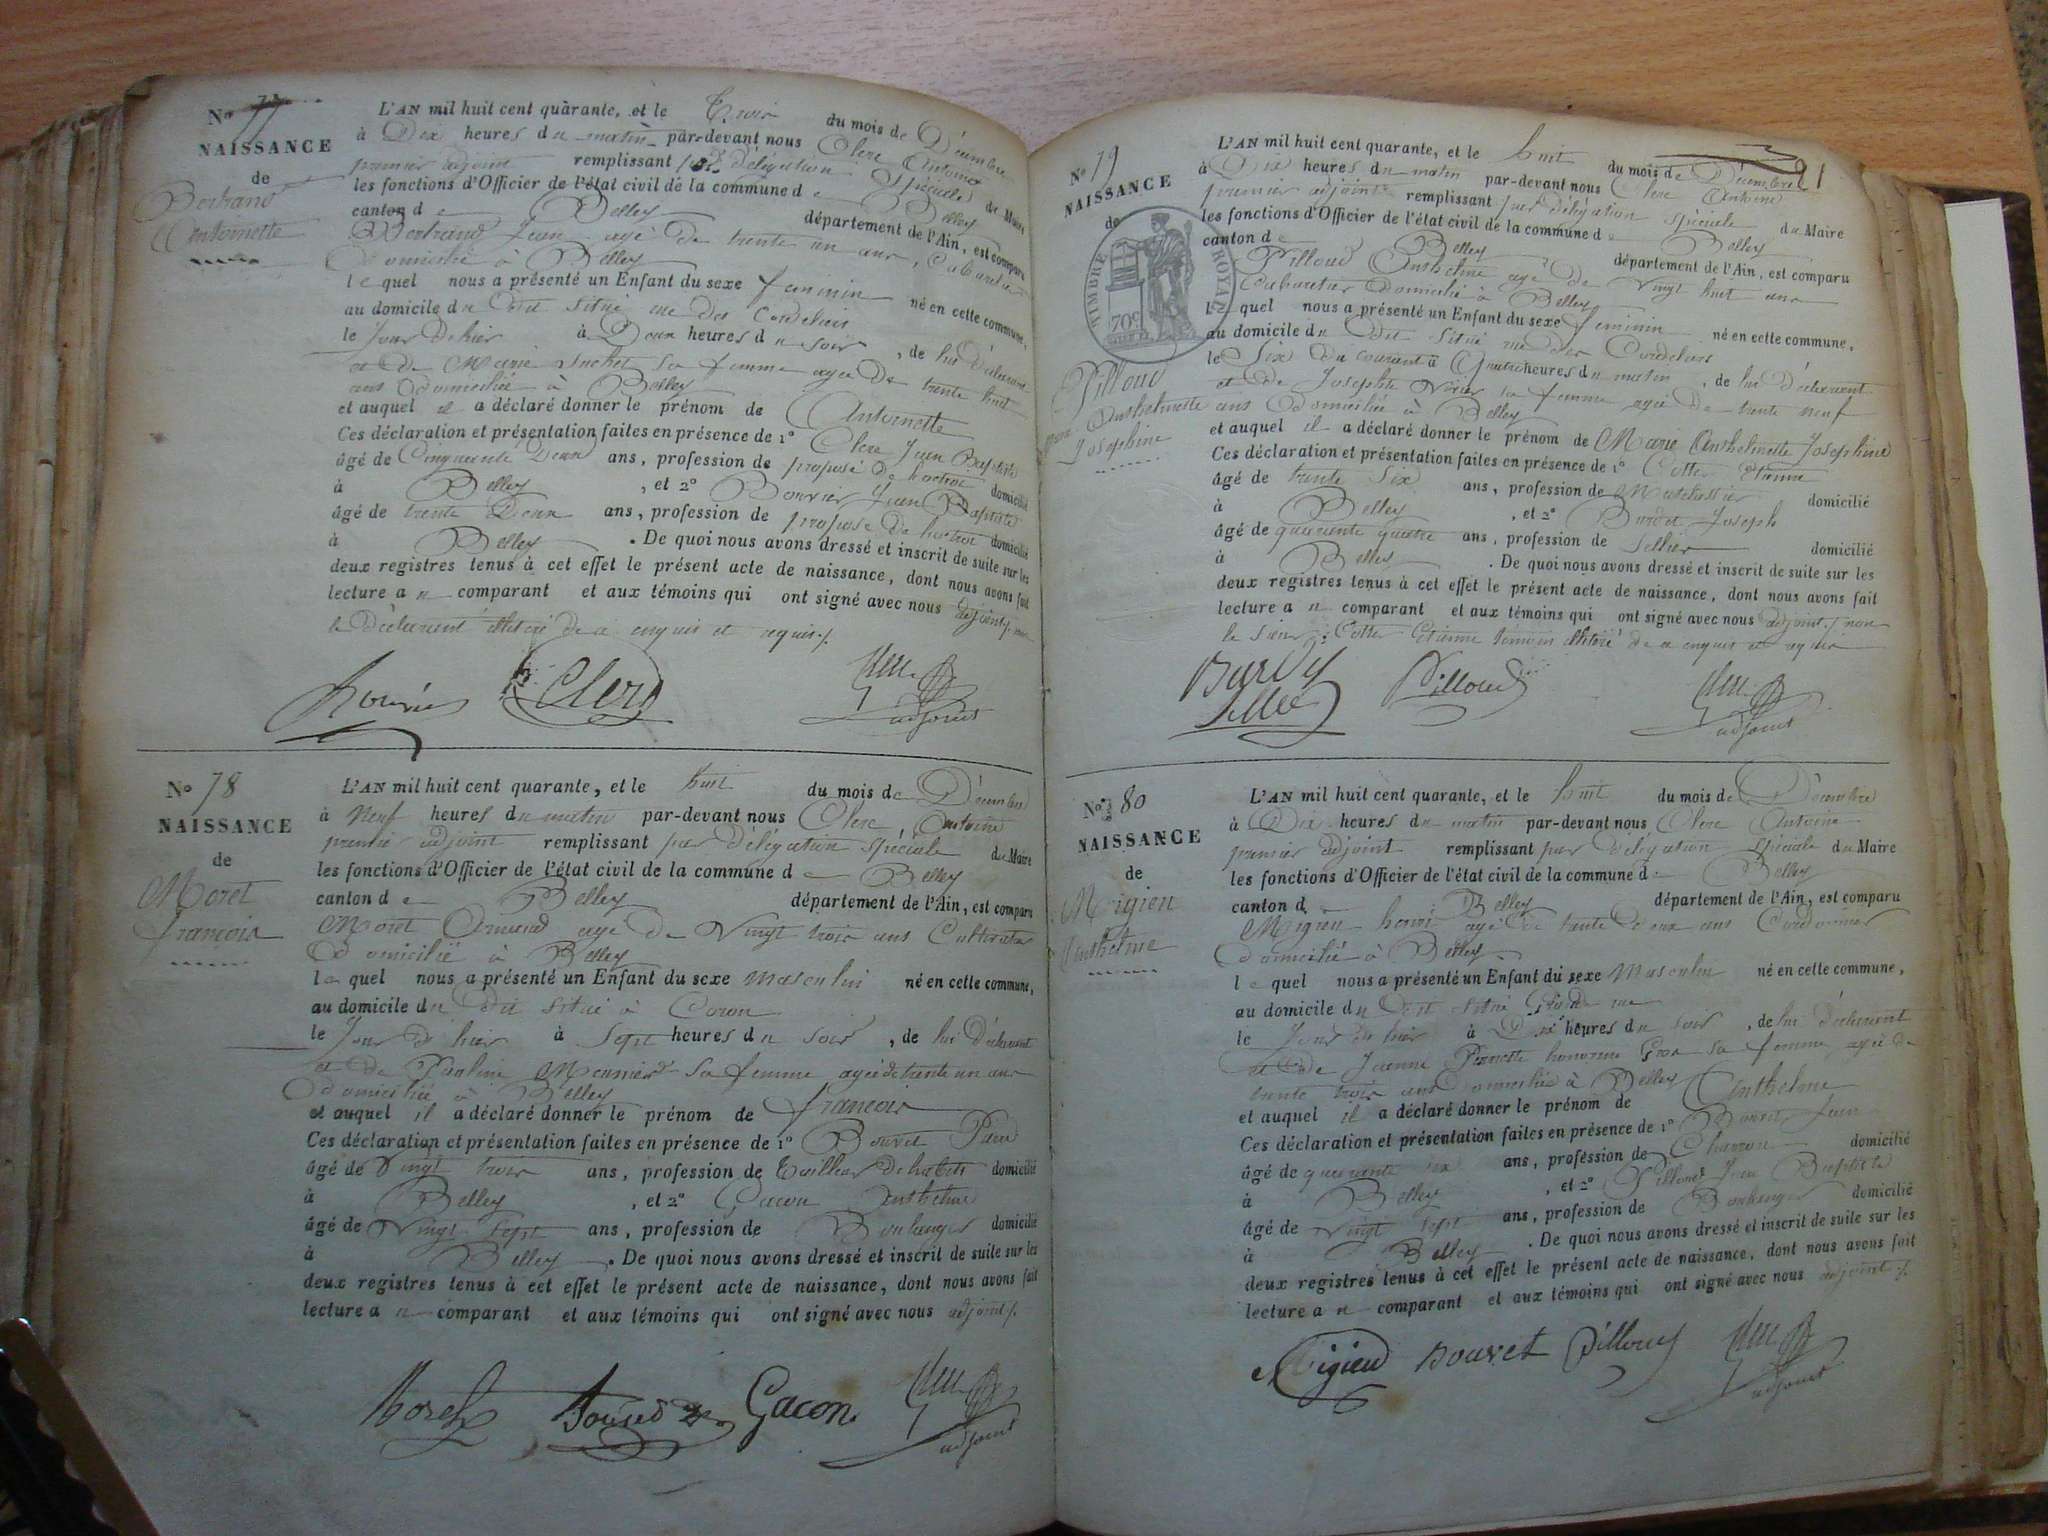 N° 77
NAISSANCE
de
Bertrand
Antoinette
L'AN mil huit cent quarante, et le Trois du mois de Décembre
à Dix heures du matin par-devant nous Clerc Antoine
premier adjoint remplissant par Délégation Spéciale du Maire
les fonctions d'Officier de l'état civil de la commune de Belley
canton de Belley département de l'Ain, est comparu
Bertrand Jean agé de trente un ans, Cabaretier
Domicilié à Belley
lequel nous a présenté un Enfant du sexe feminin né en cette commune,
au domicile du Dit situé rue des Cordeliers
le Jour d'hier à Deux heures du soir, de lui Déclarant
et de Marie Suchet sa femme agée De trente huit
ans Domiciliée à Belley
et auquel il a déclaré donner le prénom de Antoinette
Ces déclaration et présentation faites en présence de 1° Clerc Jean Baptiste
âgé de Cinquante Deux ans, profession de préposé De l'octroi domicilié
à Belley, et 2° Bouvier Jean Baptiste
âgé de trente Deux ans, profession de préposé De l'octroi domicilié
à Belley. De quoi nous avons dressé et inscrit de suite sur les
deux registres tenus à cet effet le présent acte de naissance, dont nous avons fait
lecture au comparant et aux témoins qui ont signé avec nous adjoint, non
le Déclarant illitéré de ce enquis et requis./.
Bouvier Clerc
adjoint
N° 78
NAISSANCE
de
Moret
françois
L'AN mil huit cent quarante, et le huit du mois de Décembre
à Neuf heures du matin par-devant nous Clerc Antoine
premier adjoint remplissant par Délégation spéciale du Maire
les fonctions d'Officier de l'état civil de la commune de Belley
canton de Belley département de l'Ain, est comparu
Moret Armand agé de Vingt trois ans Cultivateur
Domicilié à Belley
lequel nous a présenté un Enfant du sexe Masculin né en cette commune,
au domicile du Dit situé à Coron
le Jour d'hier à Sept heures du soir, de lui Déclarant
et de Pauline Meunier sa femme agée de trente un ans
Domiciliée à Belley
et auquel il a déclaré donner le prénom de françois
Ces déclaration et présentation faites en présence de 1° Bouvet
âgé de Vingt trois ans, profession de Tailleur D'habits domicilié
à Belley, et 2° Gacon Anthelme
âgé de Vingt Sept ans, profession de Boulanger domicilié
à Belley. De quoi nous avons dressé et inscrit de suite sur les
deux registres tenus à cet effet le présent acte de naissance, dont nous avons fait
lecture au comparant et aux témoins qui ont signé avec nous adjoint./.
Moret Gacon
adjoint
91
N° 79
NAISSANCE
de
TIMBRE ROYAL
70c
Pilloud
Marie
Anthelmette
Josephine
L'AN mil huit cent quarante, et le huit du mois de Décembre
à Dix heures du matin par-devant nous Clerc Antoine
premier adjoint remplissant par délégation spéciale du Maire
les fonctions d'Officier de l'état civil de la commune de Belley
canton de Belley département de l'Ain, est comparu
Pilloud Anthelme agé De Vingt huit ans
Cabaretier Domicilié à Belley
lequel nous a présenté un Enfant du sexe féminin né en cette commune,
au domicile du Dit situé rue des Cordeliers
le Six du courant à Quatre heures du matin, de lui Déclarant
et de Josephte sa femme agée De trente neuf
ans Domiciliée à Belley
et auquel il a déclaré donner le prénom de Marie Anthelmette Josephine
Ces déclaration et présentation faites en présence de 1° Cotter Etienne
âgé de trente Six ans, profession de Matelassier domicilié
à Belley, et 2° Joseph
âgé de quarante quatre ans, profession de Sellier domicilié
à Belley. De quoi nous avons dressé et inscrit de suite sur les
deux registres tenus à cet effet le présent acte de naissance, dont nous avons fait
lecture au comparant et aux témoins qui ont signé avec nous adjoint./ non
le sieur Cotter Etienne temoin illitéré de ce enquis et requis
Pilloud
adjoint
N° 80
NAISSANCE
de
Migieu
Anthelme
L'AN mil huit cent quarante, et le huit du mois de Décembre
à Dix heures du matin par-devant nous Clerc Antoine
premier adjoint remplissant par Délégation spéciale du Maire
les fonctions d'Officier de l'état civil de la commune de Belley
canton de Belley département de l'Ain, est comparu
Migieu henri agé De trente Deux ans Cordonnier
Domicilié à Belley
lequel nous a présenté un Enfant du sexe Masculin né en cette commune,
au domicile du Dit situé Grande rue
le Jour d'hier à Dix heures du soir, de lui Déclarant
et De Jeanne sa femme agée de
trente trois ans Domiciliée à Belley
et auquel il a déclaré donner le prénom de Anthelme
Ces déclaration et présentation faites en présence de 1° Bouvet Jean
âgé de quarante six ans, profession de Charron domicilié
à Belley, et 2° Pilloud Jean Baptiste
âgé de vingt sept ans, profession de Boulanger domicilié
à Belley. De quoi nous avons dressé et inscrit de suite sur les
deux registres tenus à cet effet le présent acte de naissance, dont nous avons fait
lecture au comparant et aux témoins qui ont signé avec nous adjoint./.
Migieu Bouvet Pilloud
adjoint